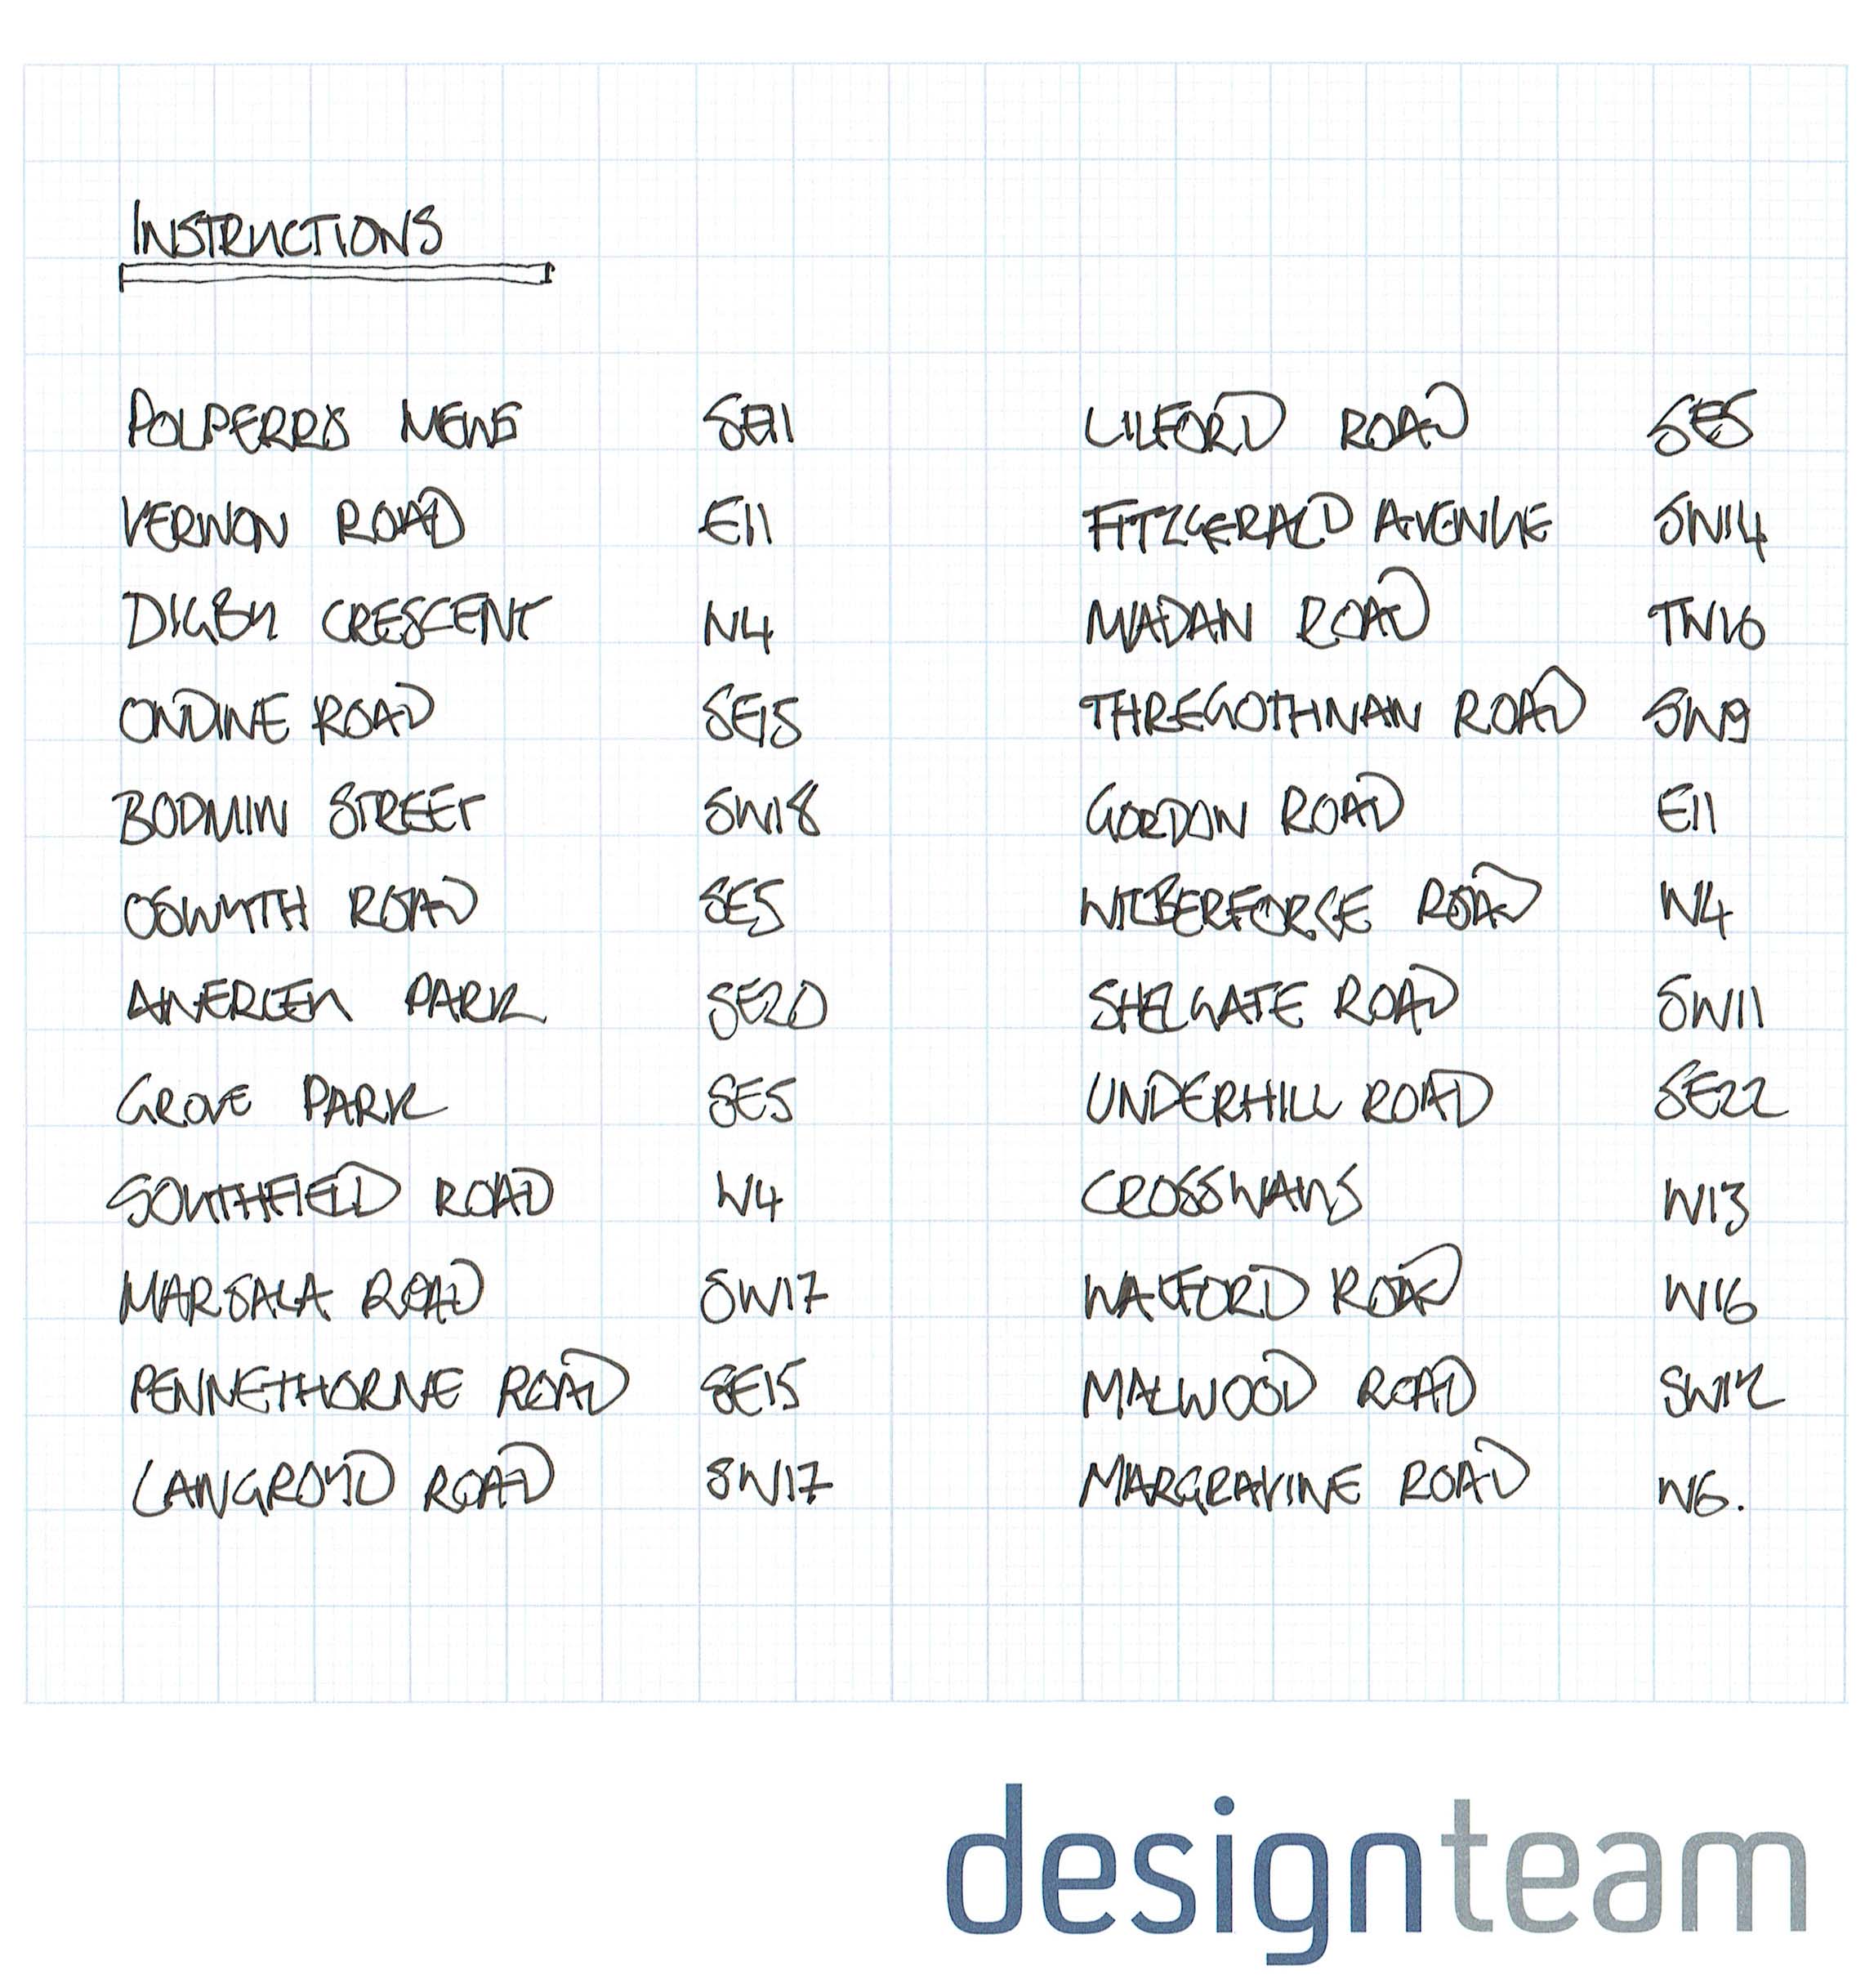 INSTRUCTIONS
POLPERRO MEWS SE11
VERNON ROAD E11
DIGBY CRESCENT N4
ONDINE ROAD SE15
BODMIN STREET SW18
OSWYTH ROAD SE5
ANERLEY PARK SE20
GROVE PARK SE5
SOUTHFIELD ROAD W4
MARSALA ROAD SW17
PENNETHORNE ROAD SE15
LANGROYD ROAD SW17
LILFORD ROAD SE5
FITZGERALD AVENUE SW14
MADAN ROAD TN16
THREGOTHNAN ROAD SW9
GORDON ROAD E11
WILBERFORCE ROAD N4
SHELGATE ROAD SW11
UNDERHILL ROAD SE22
CROSSWAYS W13
WALFORD ROAD N16
MALWOOD ROAD SW12
MARGRAVINE ROAD W6.
designteam